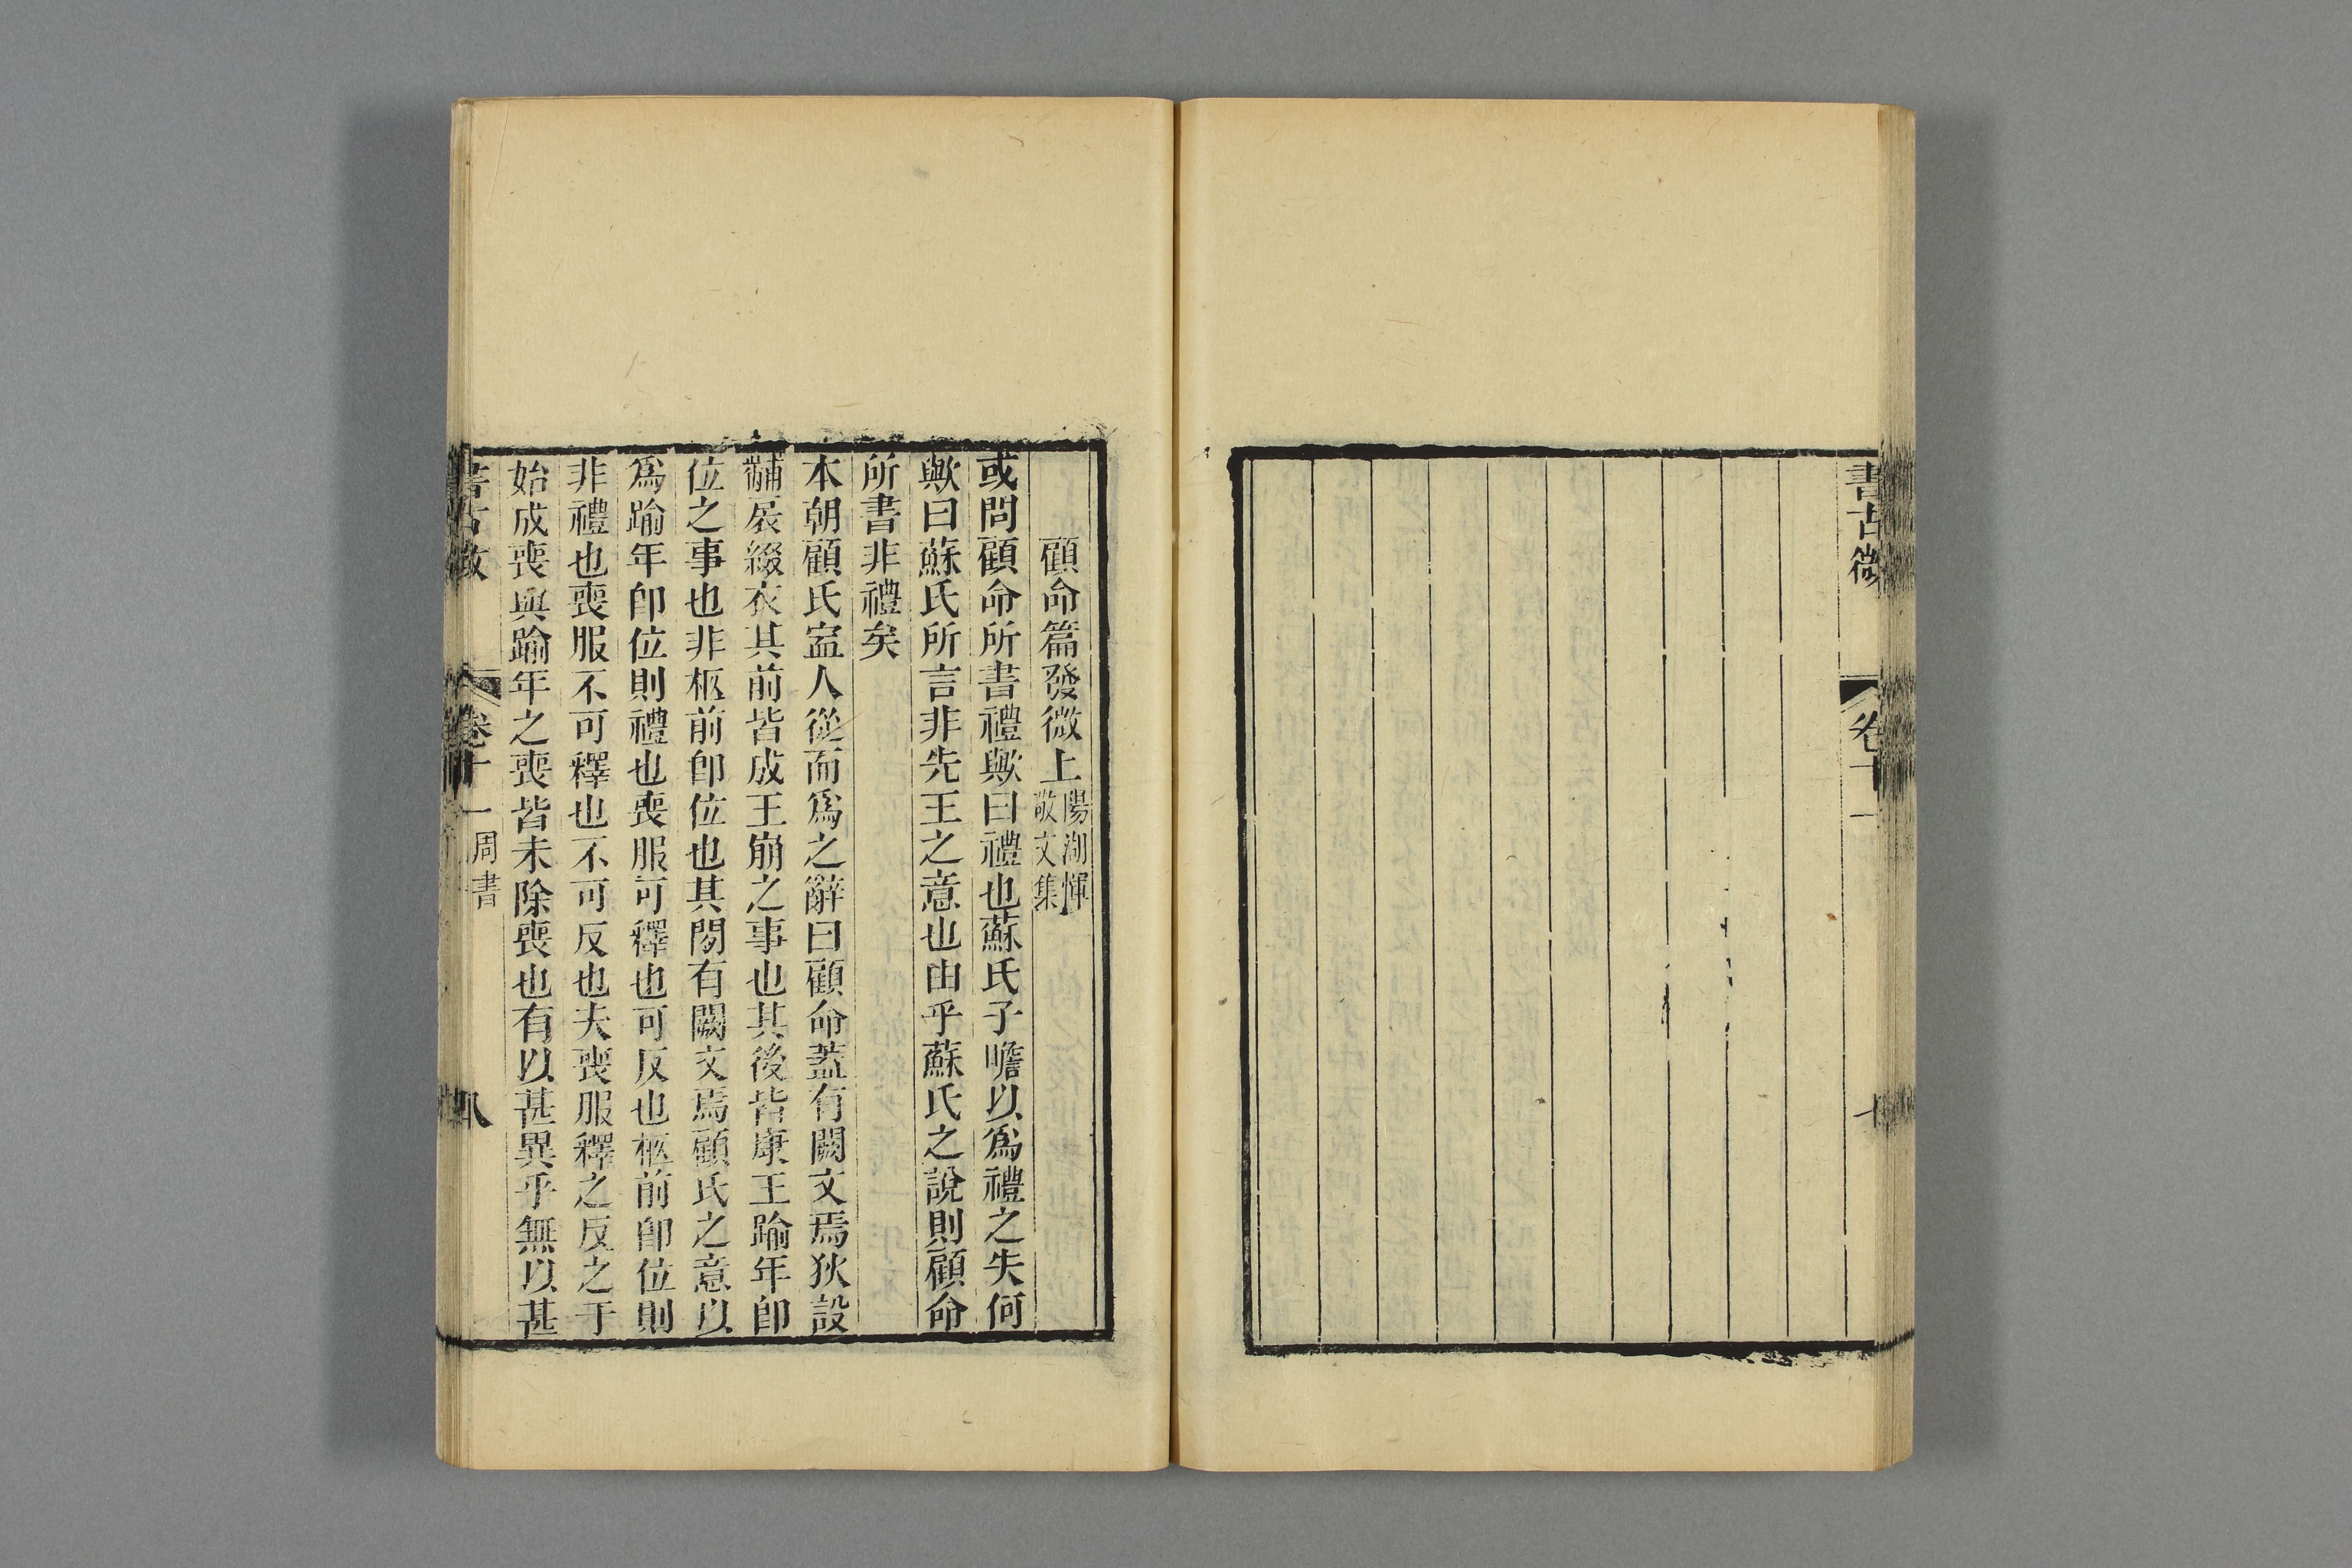 書古微
卷十一
顧命篇發微上陽湖惲敬文集
或問顧命所書禮歟曰禮也蘇氏子瞻以爲禮之失何
歟曰蘇氏所言非先王之意也由乎蘇氏之說則顧命
所書非禮矣
本朝顧氏寍人從而爲之辭曰顧命蓋有闕文焉狄設
黼扆綴衣其前皆成王崩之事也其後皆康王踰年卽
位之事也非柩前卽位也其閒有闕文焉顧氏之意以
爲踰年卽位則禮也喪服可釋也可反也柩前卽位則
非禮也喪服不可釋也不可反也夫喪服釋之反之于
始成喪與踰年之喪皆未除喪也有以甚異乎無以甚
書古微
卷十一
周書
八